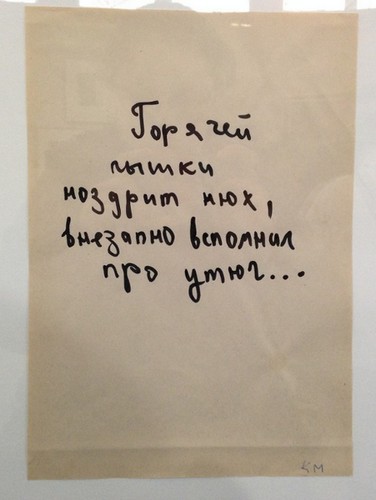 Горячей
пышки
ноздрит нюх,
внезапно вспомнил
про утюг...
КМ